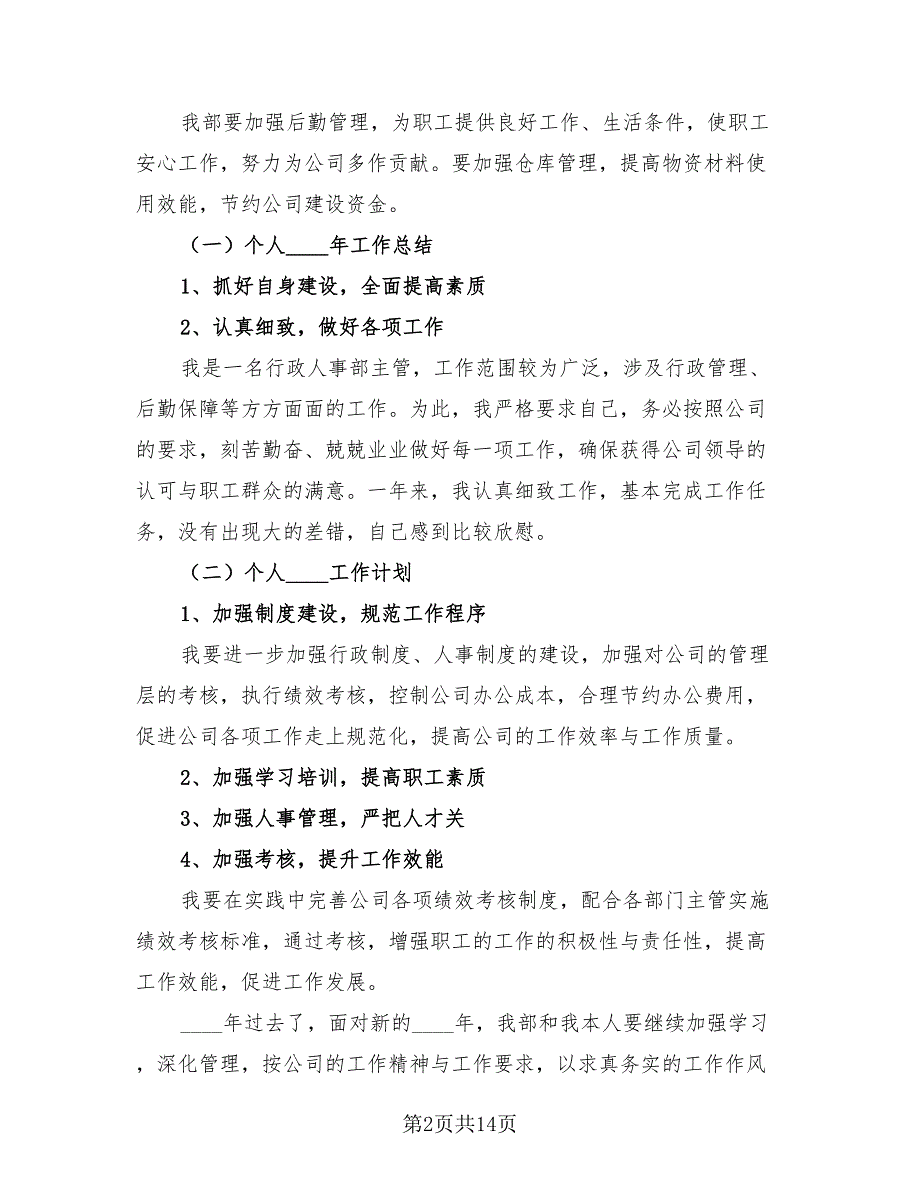 我部要加强后勤管理，为职工提供良好工作、生活条件，使职工
安心工作，努力为公司多作贡献。要加强仓库管理，提高物资材料使
用效能，节约公司建设资金。
（一）个人____年工作总结
1、抓好自身建设，全面提高素质
2、认真细致，做好各项工作
我是一名行政人事部主管，工作范围较为广泛，涉及行政管理、
后勤保障等方方面面的工作。为此，我严格要求自己，务必按照公司
的要求，刻苦勤奋、兢兢业业做好每一项工作，确保获得公司领导的
认可与职工群众的满意。一年来，我认真细致工作，基本完成工作任
务，没有出现大的差错，自己感到比较欣慰。
（二）个人____工作计划
1、加强制度建设，规范工作程序
我要进一步加强行政制度、人事制度的建设，加强对公司的管理
层的考核，执行绩效考核，控制公司办公成本，合理节约办公费用，
促进公司各项工作走上规范化，提高公司的工作效率与工作质量。
2、加强学习培训，提高职工素质
3、加强人事管理，严把人才关
4、加强考核，提升工作效能
我要在实践中完善公司各项绩效考核制度，配合各部门主管实施
绩效考核标准，通过考核，增强职工的工作的积极性与责任性，提高
工作效能，促进工作发展。
____年过去了，面对新的____年，我部和我本人要继续加强学习
，深化管理，按公司的工作精神与工作要求，以求真务实的工作作风
第2页共14页